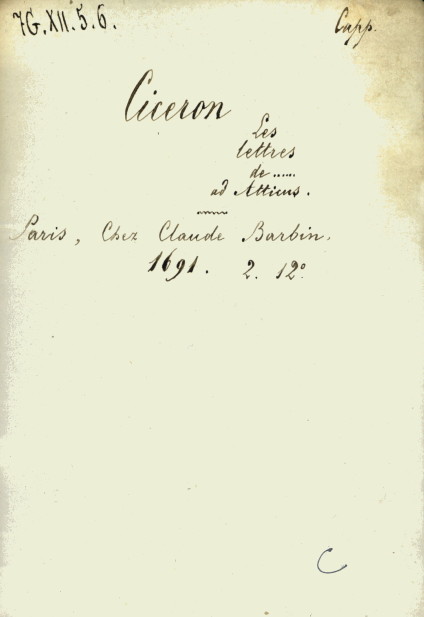 7G.XII.5.6.
Capp.
Ciceron
Les
lettres
de ......
ad Atticus.
Paris, Chez Claude Barbin.
1691. 2. 12º
C